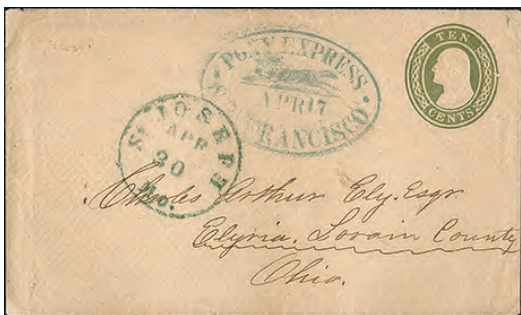 TEN
CENTS
PONY EXPRESS
APR 17
SAN FRANCISCO
ST JOSEPH
APR
30
Mo.
Charles Arthur Ely. Esqr
Elyria. Lorain County
Ohio.